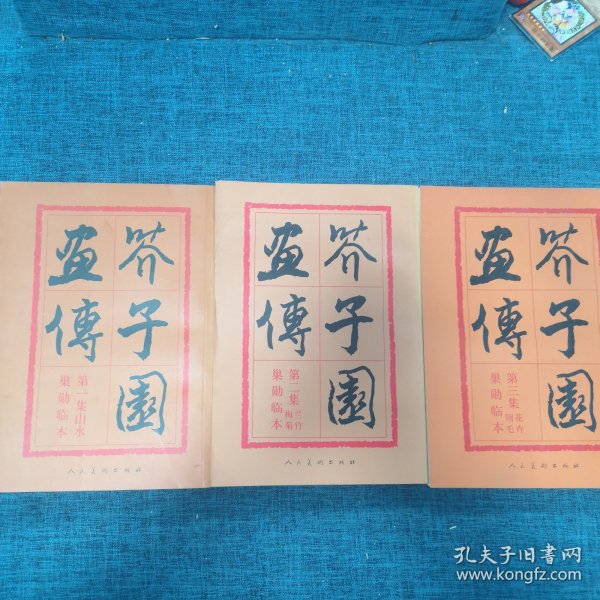 芥子園
畫傳
第一集山水
巢勋临本
人民美術出版社
芥子園
畫傳
第二集兰竹梅菊
巢勋临本
人民美術出版社
芥子園
畫傳
第三集花卉翎毛
巢勋临本
人民美術出版社
孔夫子旧书网
www.kongfz.com